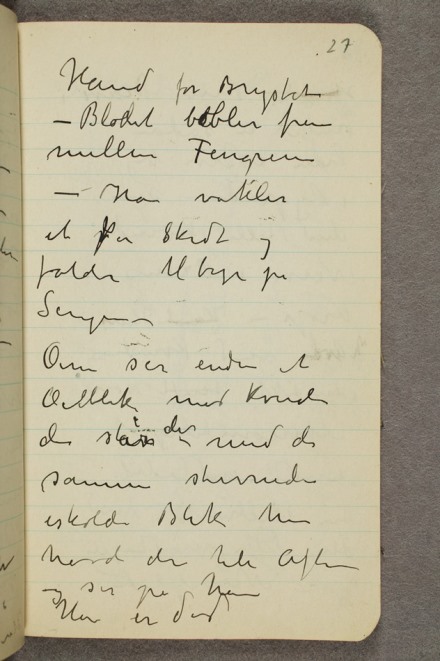 27
Haand for Brystet
– Blodet vobler frem
mellem Fengrene
– Han vakler
et Par Skridt og
falder tilbage på
Sengen –
ser endnu et
Øieblik med Kvinde
der står der med de
samme stirrende
iskolde Blik hun
havde den hele Aften
og ser på ham
Han er død